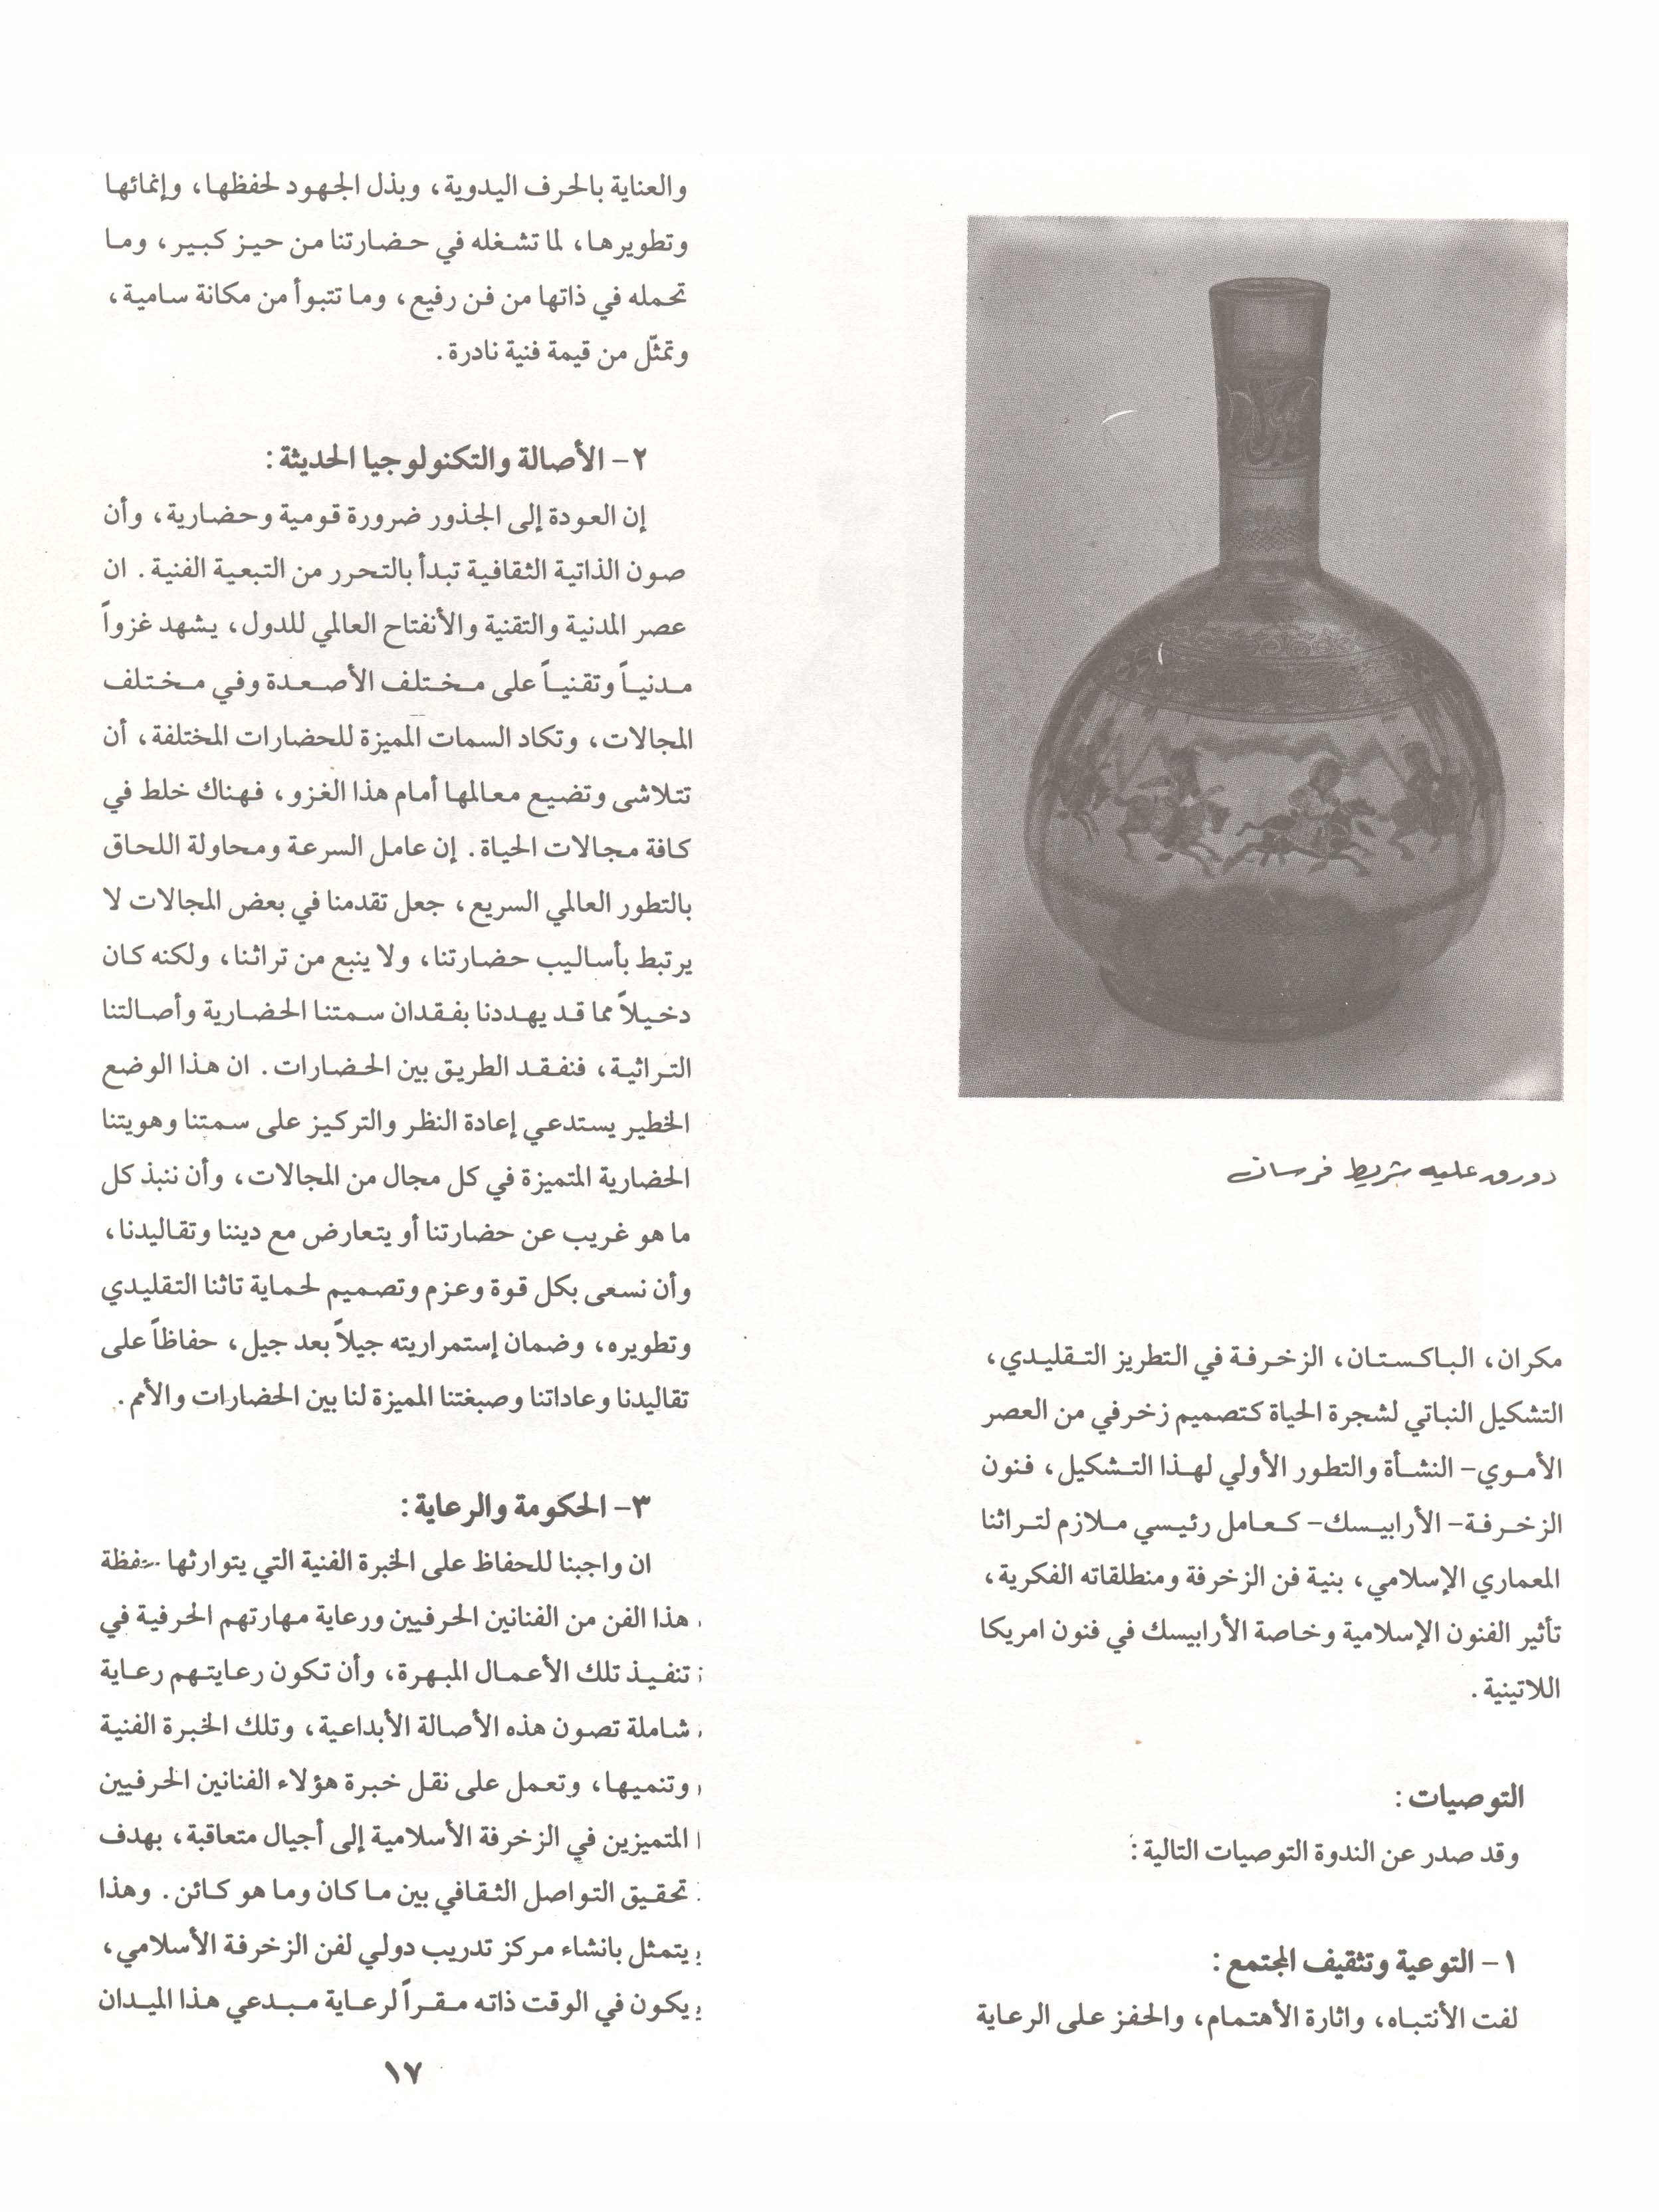 دورق عليه شريط فرسان
مكران، الباكستان، الزخرفة في التطريز التقليدي،
التشكيل النباتي لشجرة الحياة كتصميم زخرفي من العصر
الأموي- النشأة والتطور الأولي لهذا التشكيل، فنون
الزخرفة- الأرابيسك- كعامل رئيسي ملازم لتراثنا
المعماري الإسلامي، بنية فن الزخرفة ومنطلقاته الفكرية،
تأثير الفنون الإسلامية وخاصة الأرابيسك في فنون امريكا
اللاتينية.
التوصيات:
وقد صدر عن الندوة التوصيات التالية:
١- التوعية وتثقيف المجتمع:
لفت الأنتباه، واثارة الأهتمام، والحفز على الرعاية
والعناية بالحرف اليدوية، وبذل الجهود لحفظها، وإنمائها
وتطويرها، لما تشغله في حضارتنا من حيز كبير، وما
تحمله في ذاتها من فن رفيع، وما تتبوأ من مكانة سامية،
وتمثّل من قيمة فنية نادرة.
٢- الأصالة والتكنولوجيا الحديثة:
إن العودة إلى الجذور ضرورة قومية وحضارية، وأن
صون الذاتية الثقافية تبدأ بالتحرر من التبعية الفنية. ان
عصر المدنية والتقنية والأنفتاح العالمي للدول، يشهد غزواً
مدنياً وتقنياً على مختلف الأصعدة وفي مختلف
المجالات، وتكاد السمات المميزة للحضارات المختلفة، أن
تتلاشى وتضيع معالمها أمام هذا الغزو، فهناك خلط في
كافة مجالات الحياة. إن عامل السرعة ومحاولة اللحاق
بالتطور العالمي السريع، جعل تقدمنا في بعض المجالات لا
يرتبط بأساليب حضارتنا، ولا ينبع من تراثنا، ولكنه كان
دخيلاً مما قد يهددنا بفقدان سمتنا الحضارية وأصالتنا
التراثية، فنفقد الطريق بين الحضارات. ان هذا الوضع
الخطير يستدعي إعادة النظر والتركيز على سمتنا وهويتنا
الحضارية المتميزة في كل مجال من المجالات، وأن ننبذ كل
ما هو غريب عن حضارتنا أو يتعارض مع ديننا وتقاليدنا،
وأن نسعى بكل قوة وعزم وتصميم لحماية تاثنا التقليدي
وتطويره، وضمان إستمراريته جيلاً بعد جيل، حفاظاً على
تقاليدنا وعاداتنا وصبغتنا المميزة لنا بين الحضارات والأمم.
٣- الحكومة والرعاية:
ان واجبنا للحفاظ على الخبرة الفنية التي يتوارثها
هذا الفن من الفنانين الحرفيين ورعاية مهارتهم الحرفية في
تنفيذ تلك الأعمال المبهرة، وأن تكون رعايتهم رعاية
شاملة تصون هذه الأصالة الأبداعية، وتلك الخبرة الفنية
وتنميها، وتعمل على نقل خبرة هؤلاء الفنانين الحرفيين
المتميزين في الزخرفة الأسلامية إلى أجيال متعاقبة، بهدف
تحقيق التواصل الثقافي بين ما كان وما هو كائن. وهذا
يتمثل بانشاء مركز تدريب دولي لفن الزخرفة الأسلامي،
يكون في الوقت ذاته مقراً لرعاية مبدعي هذا الميدان
١٧